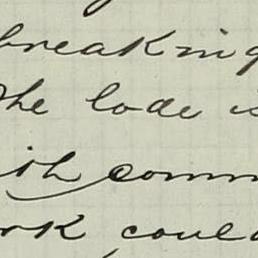 breaking
The lode is
ish comm
ork could